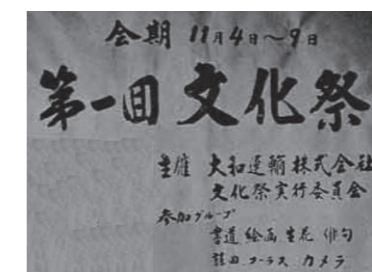 会期 11月4日〜9日
第一回 文化祭
主催 大和運輸株式会社
文化祭実行委員会
参加グループ
書道 絵画 生花 俳句
謡曲 コーラス カメラ